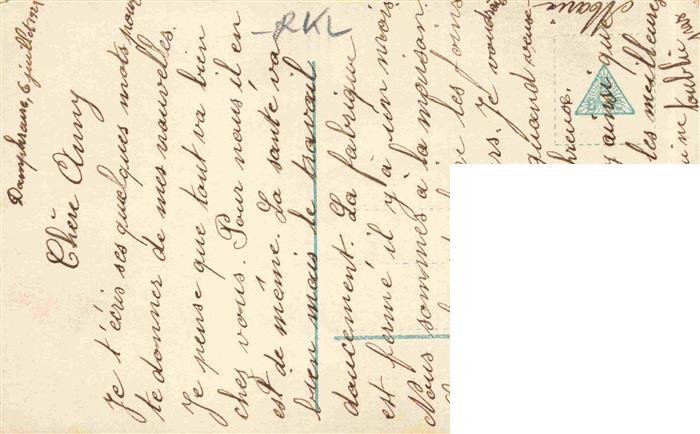 Damphreux, 6 juillet 1921
Chère Anny
Je t'écris ses quelques mots pour
te donner de mes nouvelles.
Je pense que tout va bien
chez vous. Pour nous il en
est de même. La santé va
bien mais le travail
doucement. La fabrique
est fermé il y à un mois
Nous sommes à la maison.
les foins
rs. Je voudrais
quand
hreuse.
ainsi que
les meilleures
ne
Marie
RKL